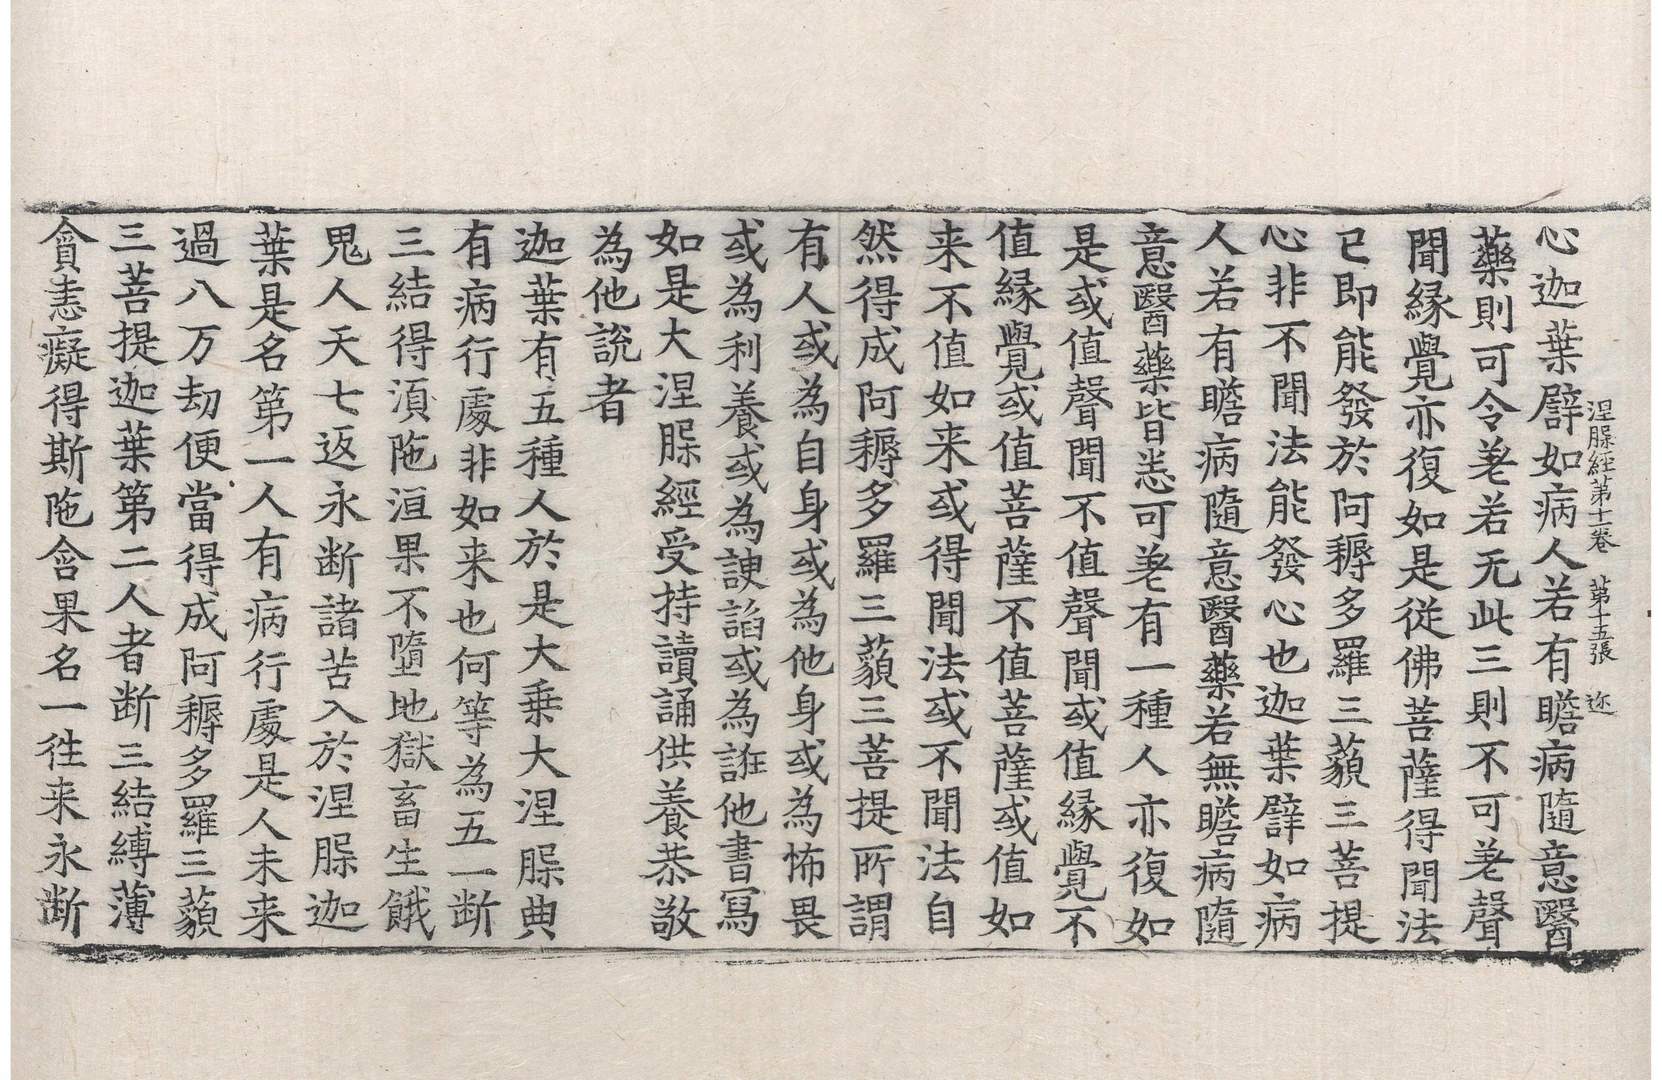 涅槃経苐十一卷　苐十五張　迩
心迦葉譬如病人若有瞻病隨意醫
藥則可令差若无此三則不可差聲
聞緣覺亦復如是従佛菩薩得聞法
已即能發於阿耨多羅三藐三菩提
心非不聞法能發心也迦葉譬如病
人若有瞻病隨意醫藥若無瞻病隨
意醫藥皆悉可差有一種人亦復如
是或值聲聞不值聲聞或值緣覺不
值緣覺或值菩薩不值菩薩或值如
来不值如来或得聞法或不聞法自
然得成阿耨多羅三藐三菩提所謂
有人或為自身或為他身或為怖畏
或為利養或為諛諂或為誑他書寫
如是大涅槃經受持讀誦供養恭敬
為他說者
迦葉有五種人於是大乗大涅槃典
有病行處非如来也何等為五一断
三結得湏陁洹果不墮地獄畜生餓
鬼人天七返永断諸苦入於涅槃迦
葉是名第一人有病行處是人未来
過八万劫便當得成阿耨多羅三藐
三菩提迦葉第二人者断三結縛薄
貪恚癡得斯陁含果名一往来永断